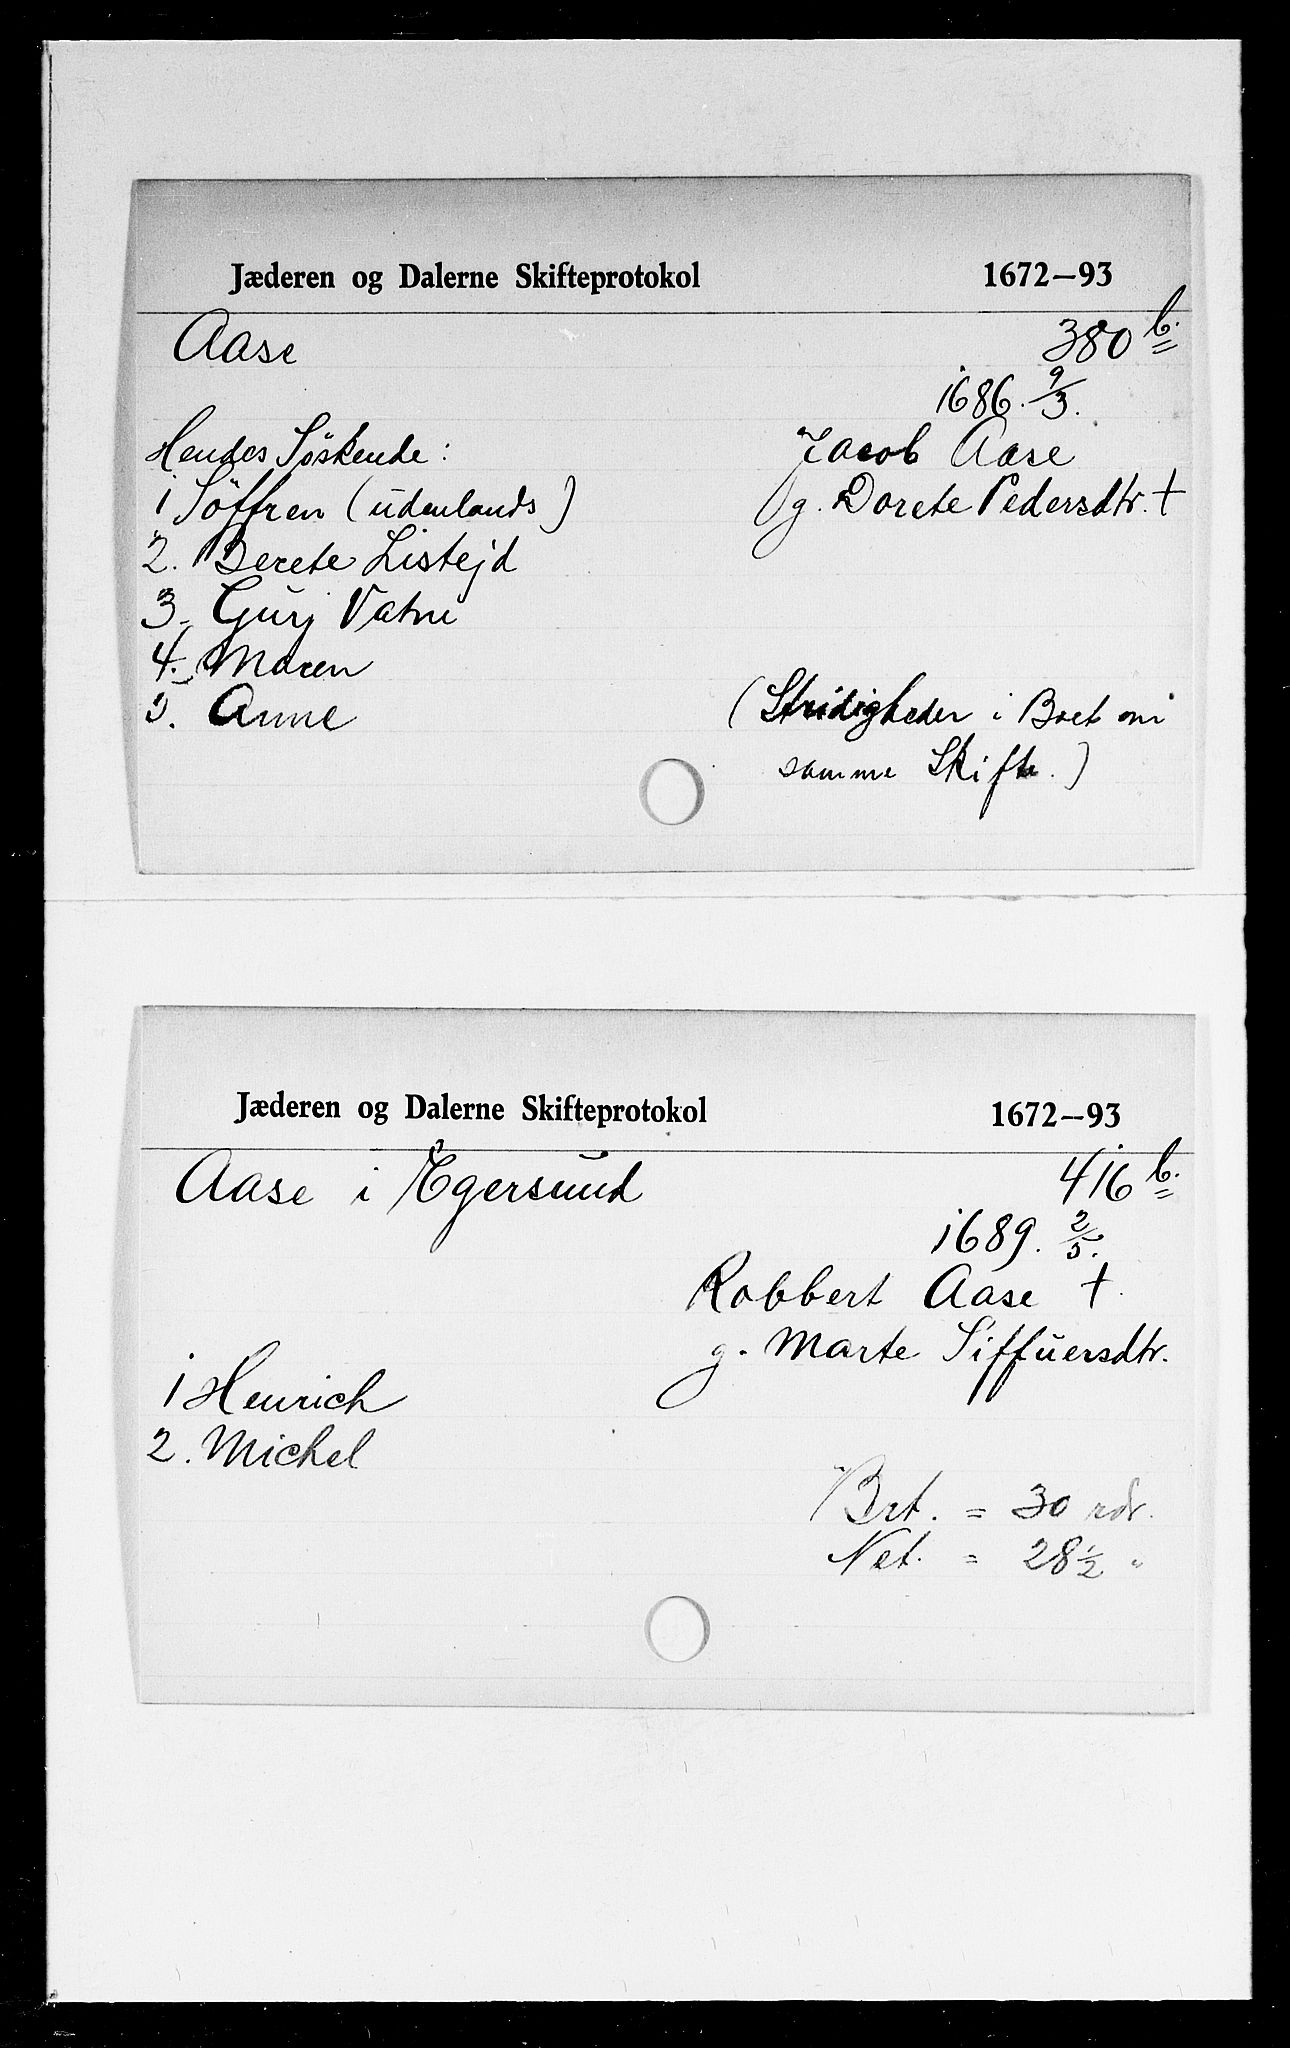 Jæderen og Dalerne Skifteprotokol 1672–93
Aase 380 b.
1686. 9/3.
Jacob Aase
g. Dorete Pedersdtr. †
Hendes Söskende:
1 Söffren (udenlands)
2. Berete Listejd
3. Gurj Vatne
4. Maren
5. Anne
(Stridigheder i Boet om
samme Skifte.)
Jæderen og Dalerne Skifteprotokol 1672–93
Aase i Egersund 416 b.
1689. 2/5.
Robbert Aase †
g. Marte Siffuersdtr.
1 Henrich
2. Michel
Brt. = 30 rdr.
Net. = 28 1/2 "